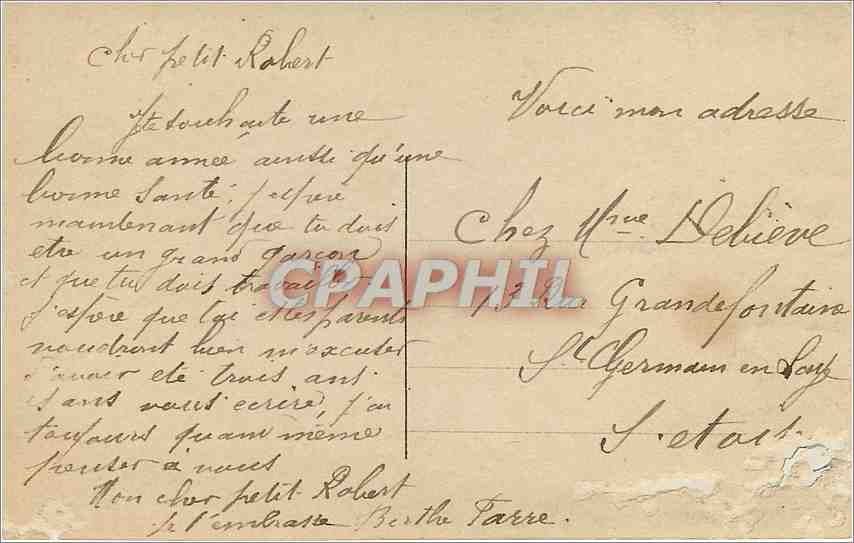 Cher petit Robert
Je te souhaite une
bonne année ainsi qu'une
bonne santé, j'espère
maintenant que tu dois
etre un grand garçon
et que tu dois travailler
J'espère que toi et tes parents
voudront bien m'excuser
d'avoir eté trois ans
sans vous ecrire, j'ai
toujours quand même
penser à vous
Mon cher petit Robert
je t'embrasse Berthe Farre.
Voici mon adresse
Chez Mme Debiève
13 Rue Grandefontaine
St Germain en Laye
S. et ois.
CPAPHIL